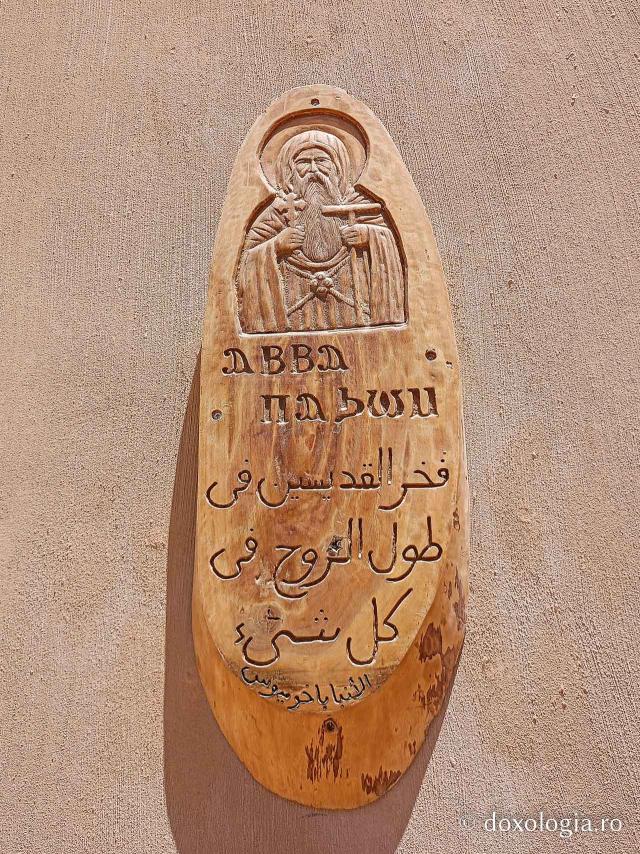 ⲀⲂⲂⲀ
ⲠⲀϦⲰⲘ
فخر القديسين فى
طول الروح فى
كل شىء
الأنبا باخوميوس
© doxologia.ro